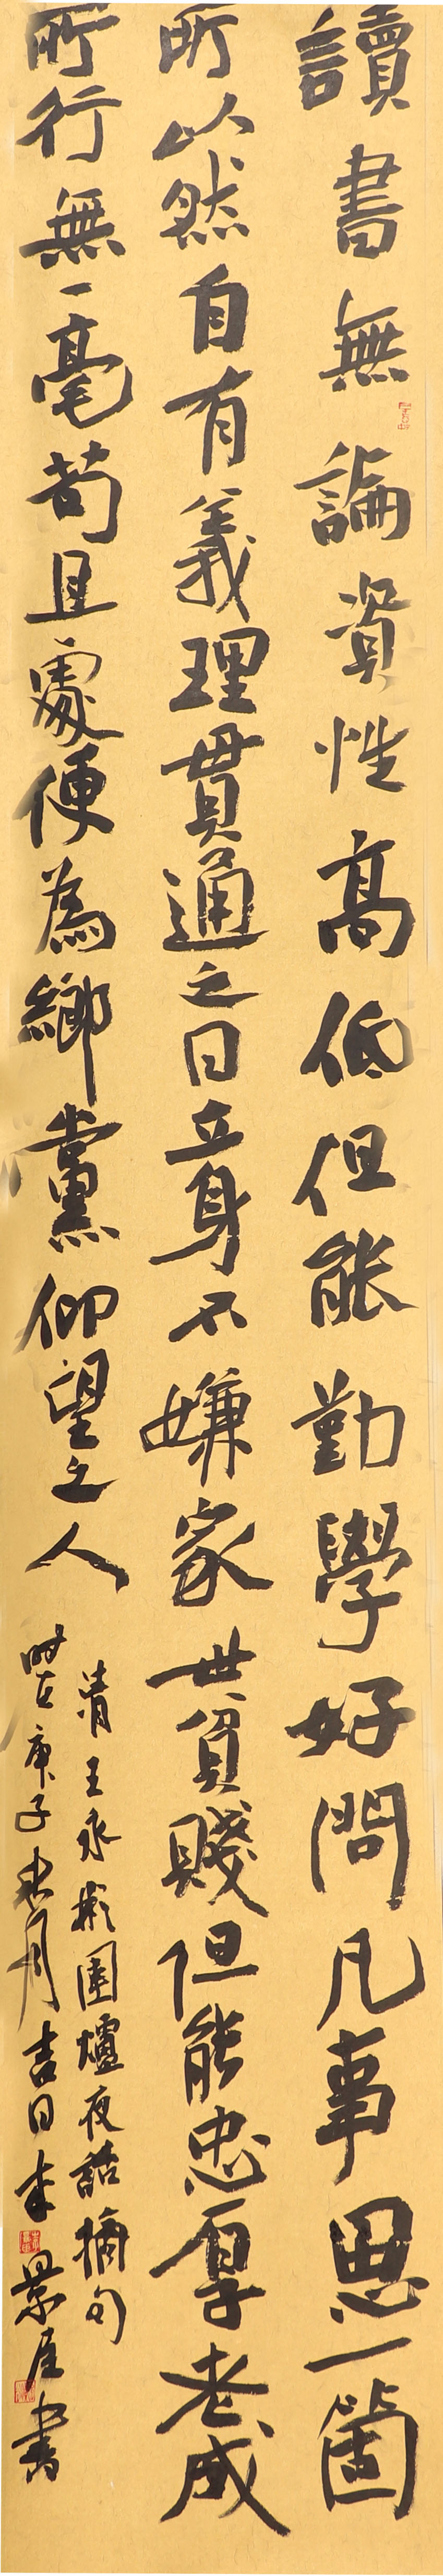 讀書無論資性高低但能勤學好問凡事思一箇
所以然自有義理貫通之日立身不嫌家世貧賤但能忠厚老成
所行無一毫苟且處便為鄉黨仰望之人
清王永彬圍爐夜話摘句
時在庚子秋月吉日 景 書